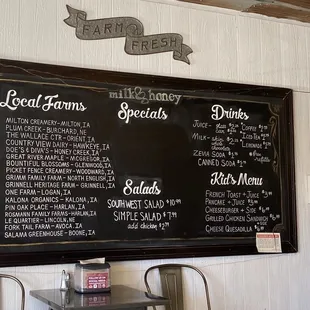 FARM FRESH
milk & honey
Local Farms
MILTON CREAMERY - MILTON, IA
PLUM CREEK - BURCHARD, NE
THE WALLACE CTR - ORIENT, IA
COUNTRY VIEW DAIRY - HAWKEYE, IA
DOE'S & DIVA'S - HONEY CREEK, IA
GREAT RIVER MAPLE - MCGREGOR, IA
BOUNTIFUL BLOSSOMS - GLENWOOD, IA
PICKET FENCE CREAMERY - WOODWARD, IA
GRIMM FAMILY FARM - NORTH ENGLISH, IA
GRINNELL HERITAGE FARM - GRINNELL, IA
ONE FARM - LOGAN, IA
KALONA ORGANICS - KALONA, IA
PIN OAK PLACE - HARLAN, IA
ROSMANN FAMILY FARMS - HARLAN, IA
LE QUARTIER - LINCOLN, NE
FORK TAIL FARM - AVOCA, IA
SALAMA GREENHOUSE - BOONE, IA
Specials
Salads
SOUTH WEST SALAD $10.99
SIMPLE SALAD $7.99
add chicken $2.99
Drinks
JUICE
MILK
ZEVIA SODA
CANNED SODA
COFFEE
ICED TEA
LEMONADE
Kid's Menu
FRENCH TOAST + JUICE
PANCAKE + JUICE
CHEESEBURGER + SIDE
GRILLED CHICKEN SANDWICH + SIDE
CHEESE QUESADILLA